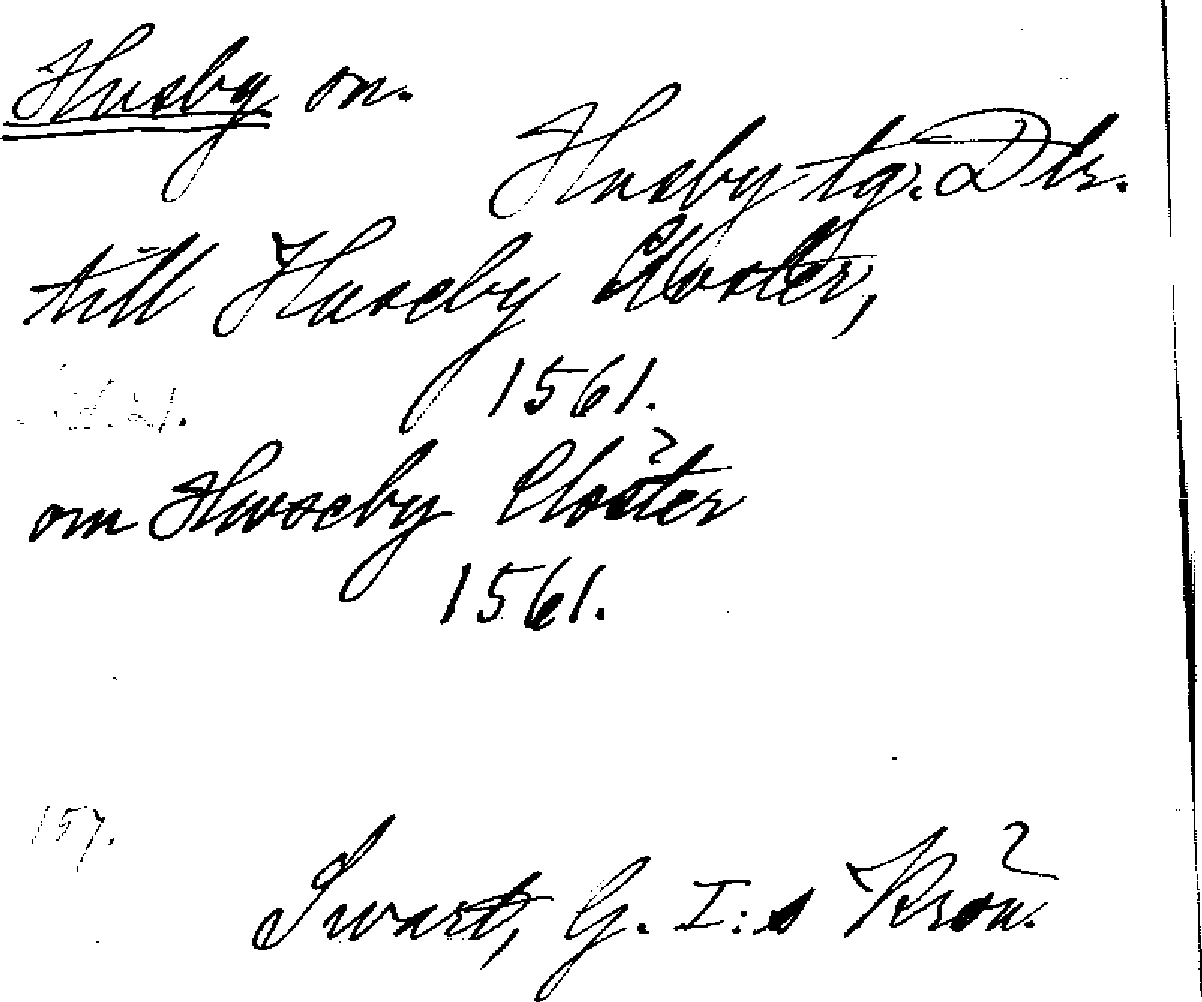 Husby sn.
Husby tg. Dlr.
till Huseby Closter,
1561.
om Hwseby Closter
1561.
157.
Swart, G. I:s Krön.